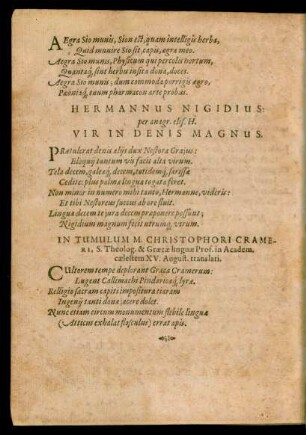 AEgra Sio munis, Sion est, quam intelligis herba,
Quid munire Sio sit, capis, ægra meo.
Aegra Sio munis, Physicum qui percolis hortum,
Quantaq́, sint herbis insita dona, doces.
Aegra Sio munis; dum commoda porrigis ægro,
Pæoniaq́, tuum pharmacon arte probas.
HERMANNUS NIGIDIUS:
per anagr. elis. H.
VIR IN DENIS MAGNUS.
PRætulerat denis alijs dux Nestora Graius:
Eloquij tantum vis facit alta virum.
Tela decem, galeæq́; decem, totidemq́;
Cedite: plus palmæ lingua togata feret.
Non minor in numero mihi tu sis, Hermanne, videris:
Et tibi Nestoreus succus ab ore fluit.
Lingua decem te jura decem præponere possunt;
Nigidium magnum fecit utrumq́, virum.
IN TUMULUM M. CHRISTOPHORI CRAME-
ri, S. Theolog. & Græcæ linguæ Prof. in Academ.
cælestem XV. August. translati.
CUltorem templa deplorant Graia Cramerum:
Lugent Callimachi Pindariq́; lyræ.
Relligio sacram capiti impositura tiaram
Ingenij tanti dona; avere dolet.
Nunc etiam circum monumentum flebile linguæ
(Atticus exhalat flosculus) errat apis.